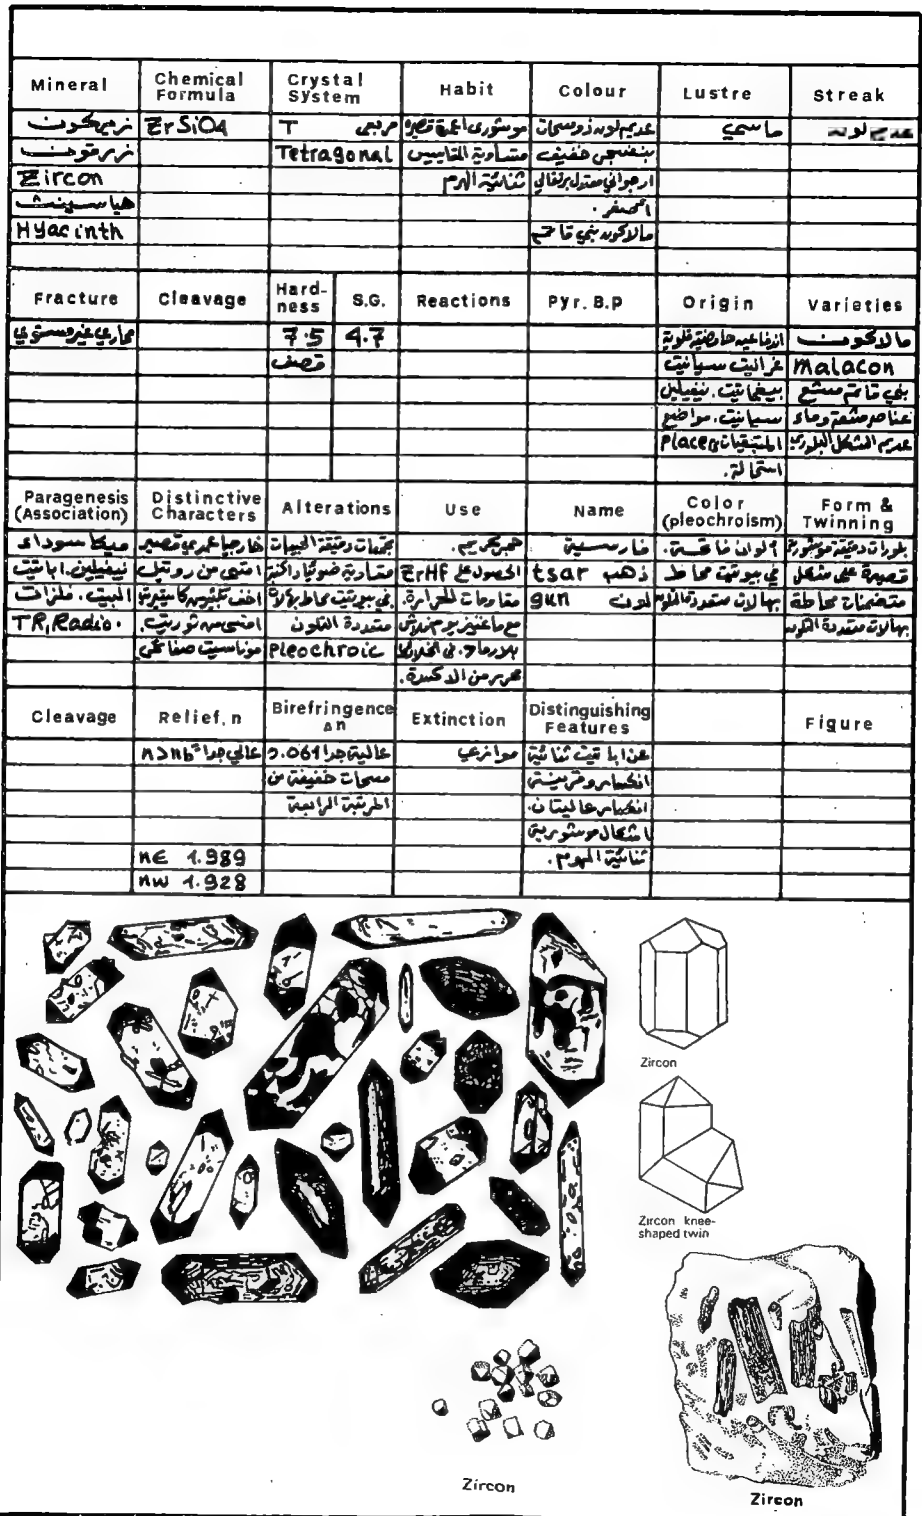 Mineral Chemical Formula Crystal System Habit Colour Lustre Streak
زيركون ZrSiO4 T مربعي موشوري اعمدة قصيرة عديم لون ذو سحات ماسي عديم لون
زرقون Tetragonal متساوية المقاييس بنفسجي خفيف
Zircon ثنائية الهرم ارجواني معتدل برتقالي
هياسينث اصفر.
Hyacinth مالاكون بني قاتم
Fracture Cleavage Hard-ness S.G. Reactions Pyr. B.P Origin Varieties
محاري غير مستوي 7.5 4.7 اندفاعية حامضية قلوية مالاكون
قصف غرانيت سيانيت Malacon
بيغماتيت. نيفيلين بني قاتم مشع
سيانيت. مواضع عناصر مشعة وماء
المتبقيات Placer عديم الشكل البلوري
استحالة.
Paragenesis (Association) Distinctive Characters Alterations Use Name Color (pleochroism) Form & Twinning
ميكا سوداء خارجيا عمودي قصير حجر كريم. فارسية الوان فاتحة. بلورات دقيقة موشورية
نيفيلين. اباتيت اقسى من روتيل الحصول على ZrHf ذهب tsar في بيوتيت محاط قصيرة على شكل
مقاومات للحرارة. لون gun بهالات متعددة التلون متضمنات محاطة
TR, Radio. متعددة التلون بهالات متعددة التلون
Pleochroic
Cleavage Relief, n Birefringence Δn Extinction Distinguishing Features Figure
عالي جدا عالية جدا 0.061 موازي عن اباتيت ثنائية
سحات خفيفة من انكسار وقرينة
المرتبة الرابعة انكسار عاليتان.
اشكال موشورية
nE 1.989 ثنائية الهرم.
nw 1.928
Zircon
Zircon knee-
shaped twin
Zircon
Zircon